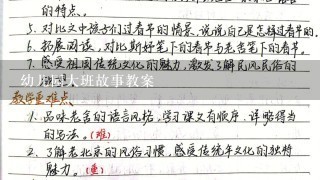 的特点。
5. 对比文中孩子们过春节的情景,说说自己是怎样过春节的。
6. 拓展阅读,对比斯好笔下的春节与老舍笔下的春节。
7. 感受祖国传统文化的魅力,激发了解民风民俗的
幼儿园大班故事教案
教学重难点
1. 品味老舍的语言风格,学习课文有顺序、详略得当
的写法。(难)
2. 了解老北京的风俗习惯,感受传统年文化的独特
魅力。(重)